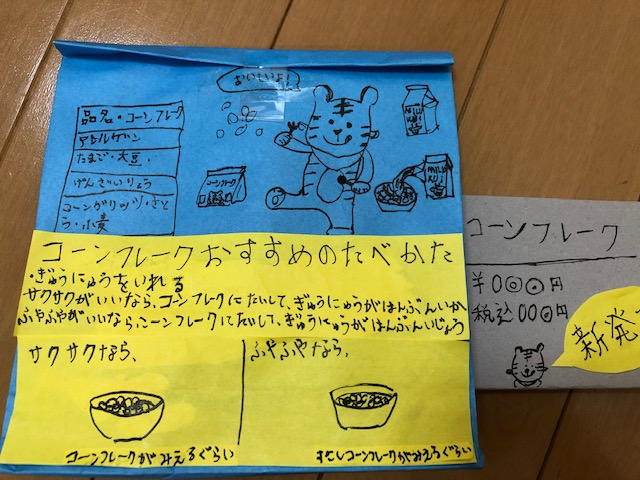 おいしいよ!
品名・コーンフレーク
アレルゲン
たまご・大豆・
げんざいりょう
コーングリッツ・さと
う・小麦
コーンフレーク
MILK
MILK
コーンフレークおすすめのたべかた
・ぎゅうにゅうをいれる
サクサクがいいなら、コーンフレークにたいして、ぎゅうにゅうがはんぶんいか
ふやふやがいいなら、コーンフレークにたいして、ぎゅうにゅうがはんぶんいじょう
サクサクなら、
コーンフレークがみえるぐらい
ふやふやなら、
すこしコーンフレークがみえるぐらい
コーンフレーク
¥000円
税込000円
新発